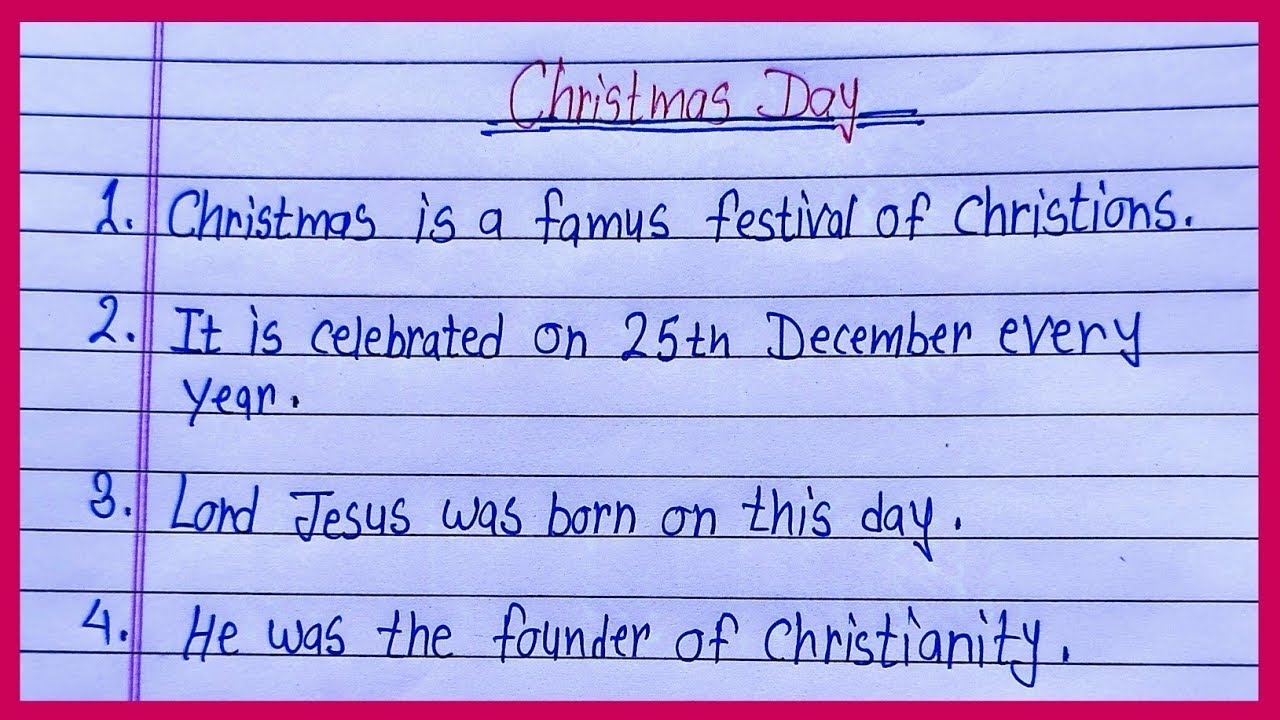 Christmas Day
1. Christmas is a famus festival of Christions.
2. It is celebrated on 25th December every
year.
3. Lord Jesus was born on this day.
4. He was the founder of Christianity.